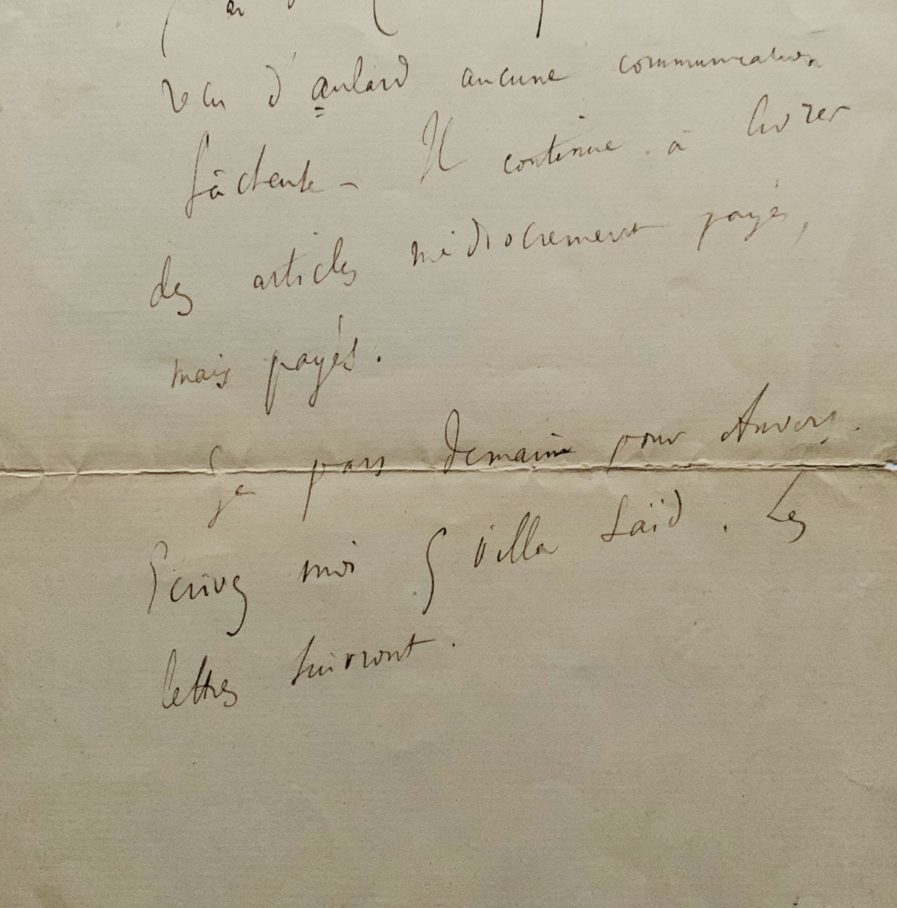 recu d'aulard aucune communication
fâcheuse – Il continue à livrer
des articles médiocrement payés,
mais payés.
Je pars demain pour Anvers.
Ecrivez moi 5 villa Saïd. Les
lettres suivront.